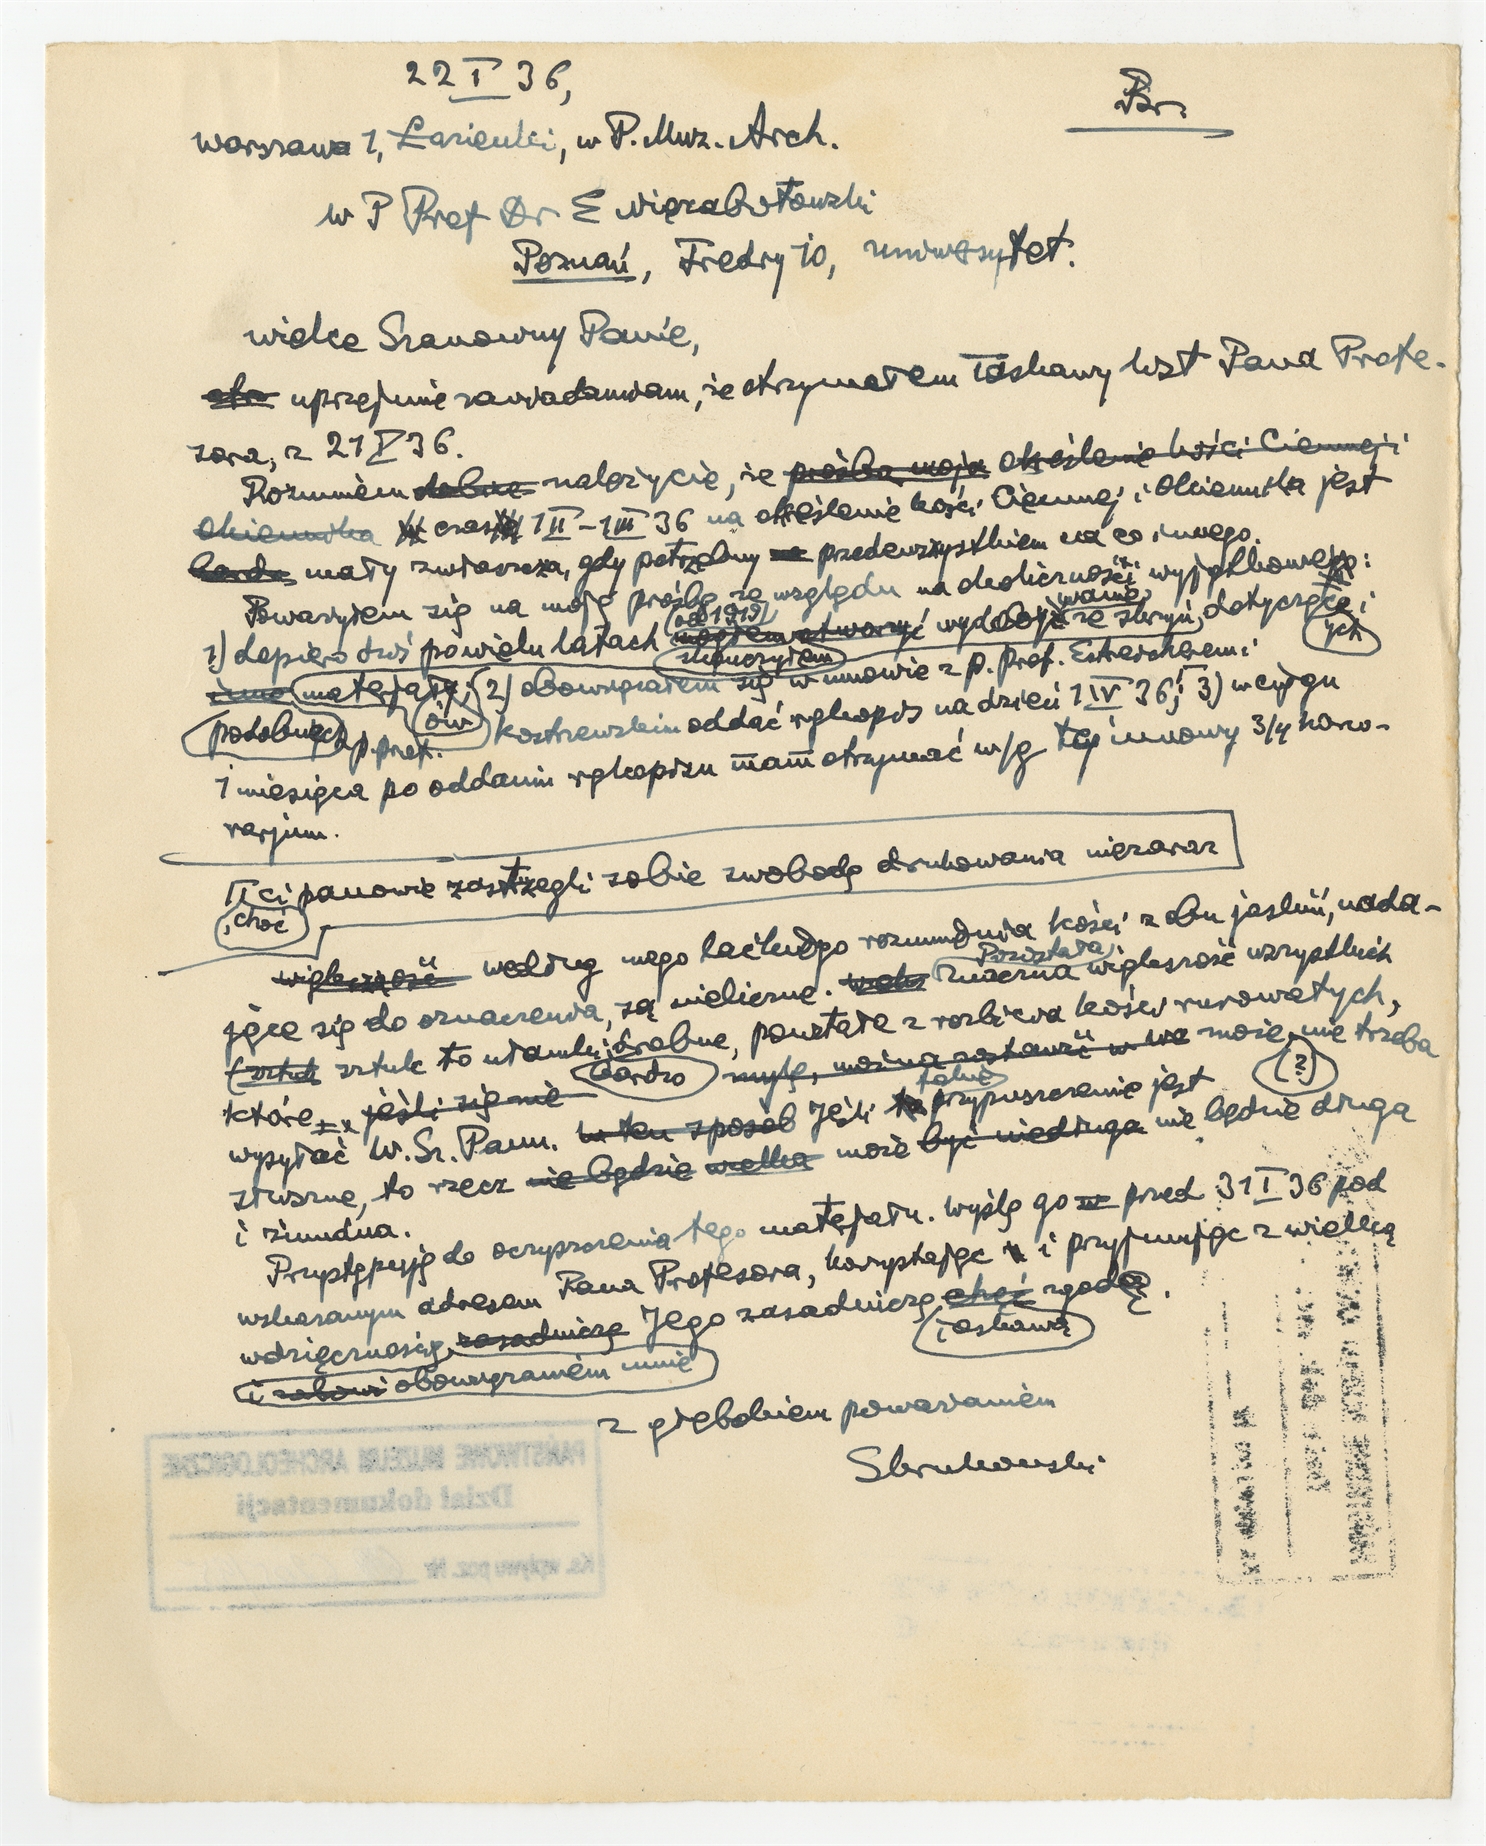 22 I 36,
Br.
Warszawa 1, Łazienki, w P. Muz. Arch.
W P Prof Dr E Niezabitowski
Poznań, Fredry 10, uniwersytet.
Wielce Szanowny Panie,
uprzejmie zawiadamiam, że otrzymałem łaskawy list Pana Profe-
sora, z 21 I 36.
Rozumiem dobrze należycie, że prośba moja określenie kości Ciemnej i
Okiennika czas 1 II – 1 III 36 na określenie kości Ciemnej i Okiennika jest
bardo mały zwłaszcza, gdy potrzebny przedewszystkiem na co innego.
Poważyłem się na moją prośbę ze względu na okoliczności wyjątkowe:
1) dopiero dziś po wielu latach (od 1919) mogłem otworzyć wydobyć ze skrzyń, dotyczące i
skończyłem wanie ych
inne materjały; 2) obowiązałem się w umowie z p. prof. Estreicherem i
podobnych ów p. prof. Kostrzewskim oddać rękopis na dzień 1 IV 36; 3) w ciągu
1 miesiąca po oddaniu rękopisu mam otrzymać w/g tej umowy 3/4 hono-
rarjum.
Ci panowie zastrzegli sobie swobodę drukowania niezaraz
, choć
większość według mego laickiego rozumienia kości z obu jaskiń, nada-
jące się do oznaczenia, są nieliczne. Pozostała
większość wszystkich
sztuk sztuk to ułamki drobne, powstałe z rozbicia kości rurowatych,
które jeśli się nie bardzo myślę, można zostawić w Wa może nie trzeba (?)
wysyłać W. Sz. Panu. W ten sposób Jeśli takie przypuszczenie jest
słuszne, to rzecz nie będzie wielka może być niedługa nie będzie długa
i żmudna.
Przystępuję do oczyszczenia tego materjału. Wyślę go przed 31 I 36 pod
wskazanym adresem Pana Profesora, korzystając i przyjmując z wielką
wdzięcznością, zasadniczą Jego zasadniczą choć zgodę.
i łaskawą
i zobowi obowiązaniem mnie
z głębokiem poważaniem
SKrukowski
PAŃSTWOWE MUZEUM ARCHEOLOGICZNE
Dział dokumentacji
Ks. wpływu poz. Nr